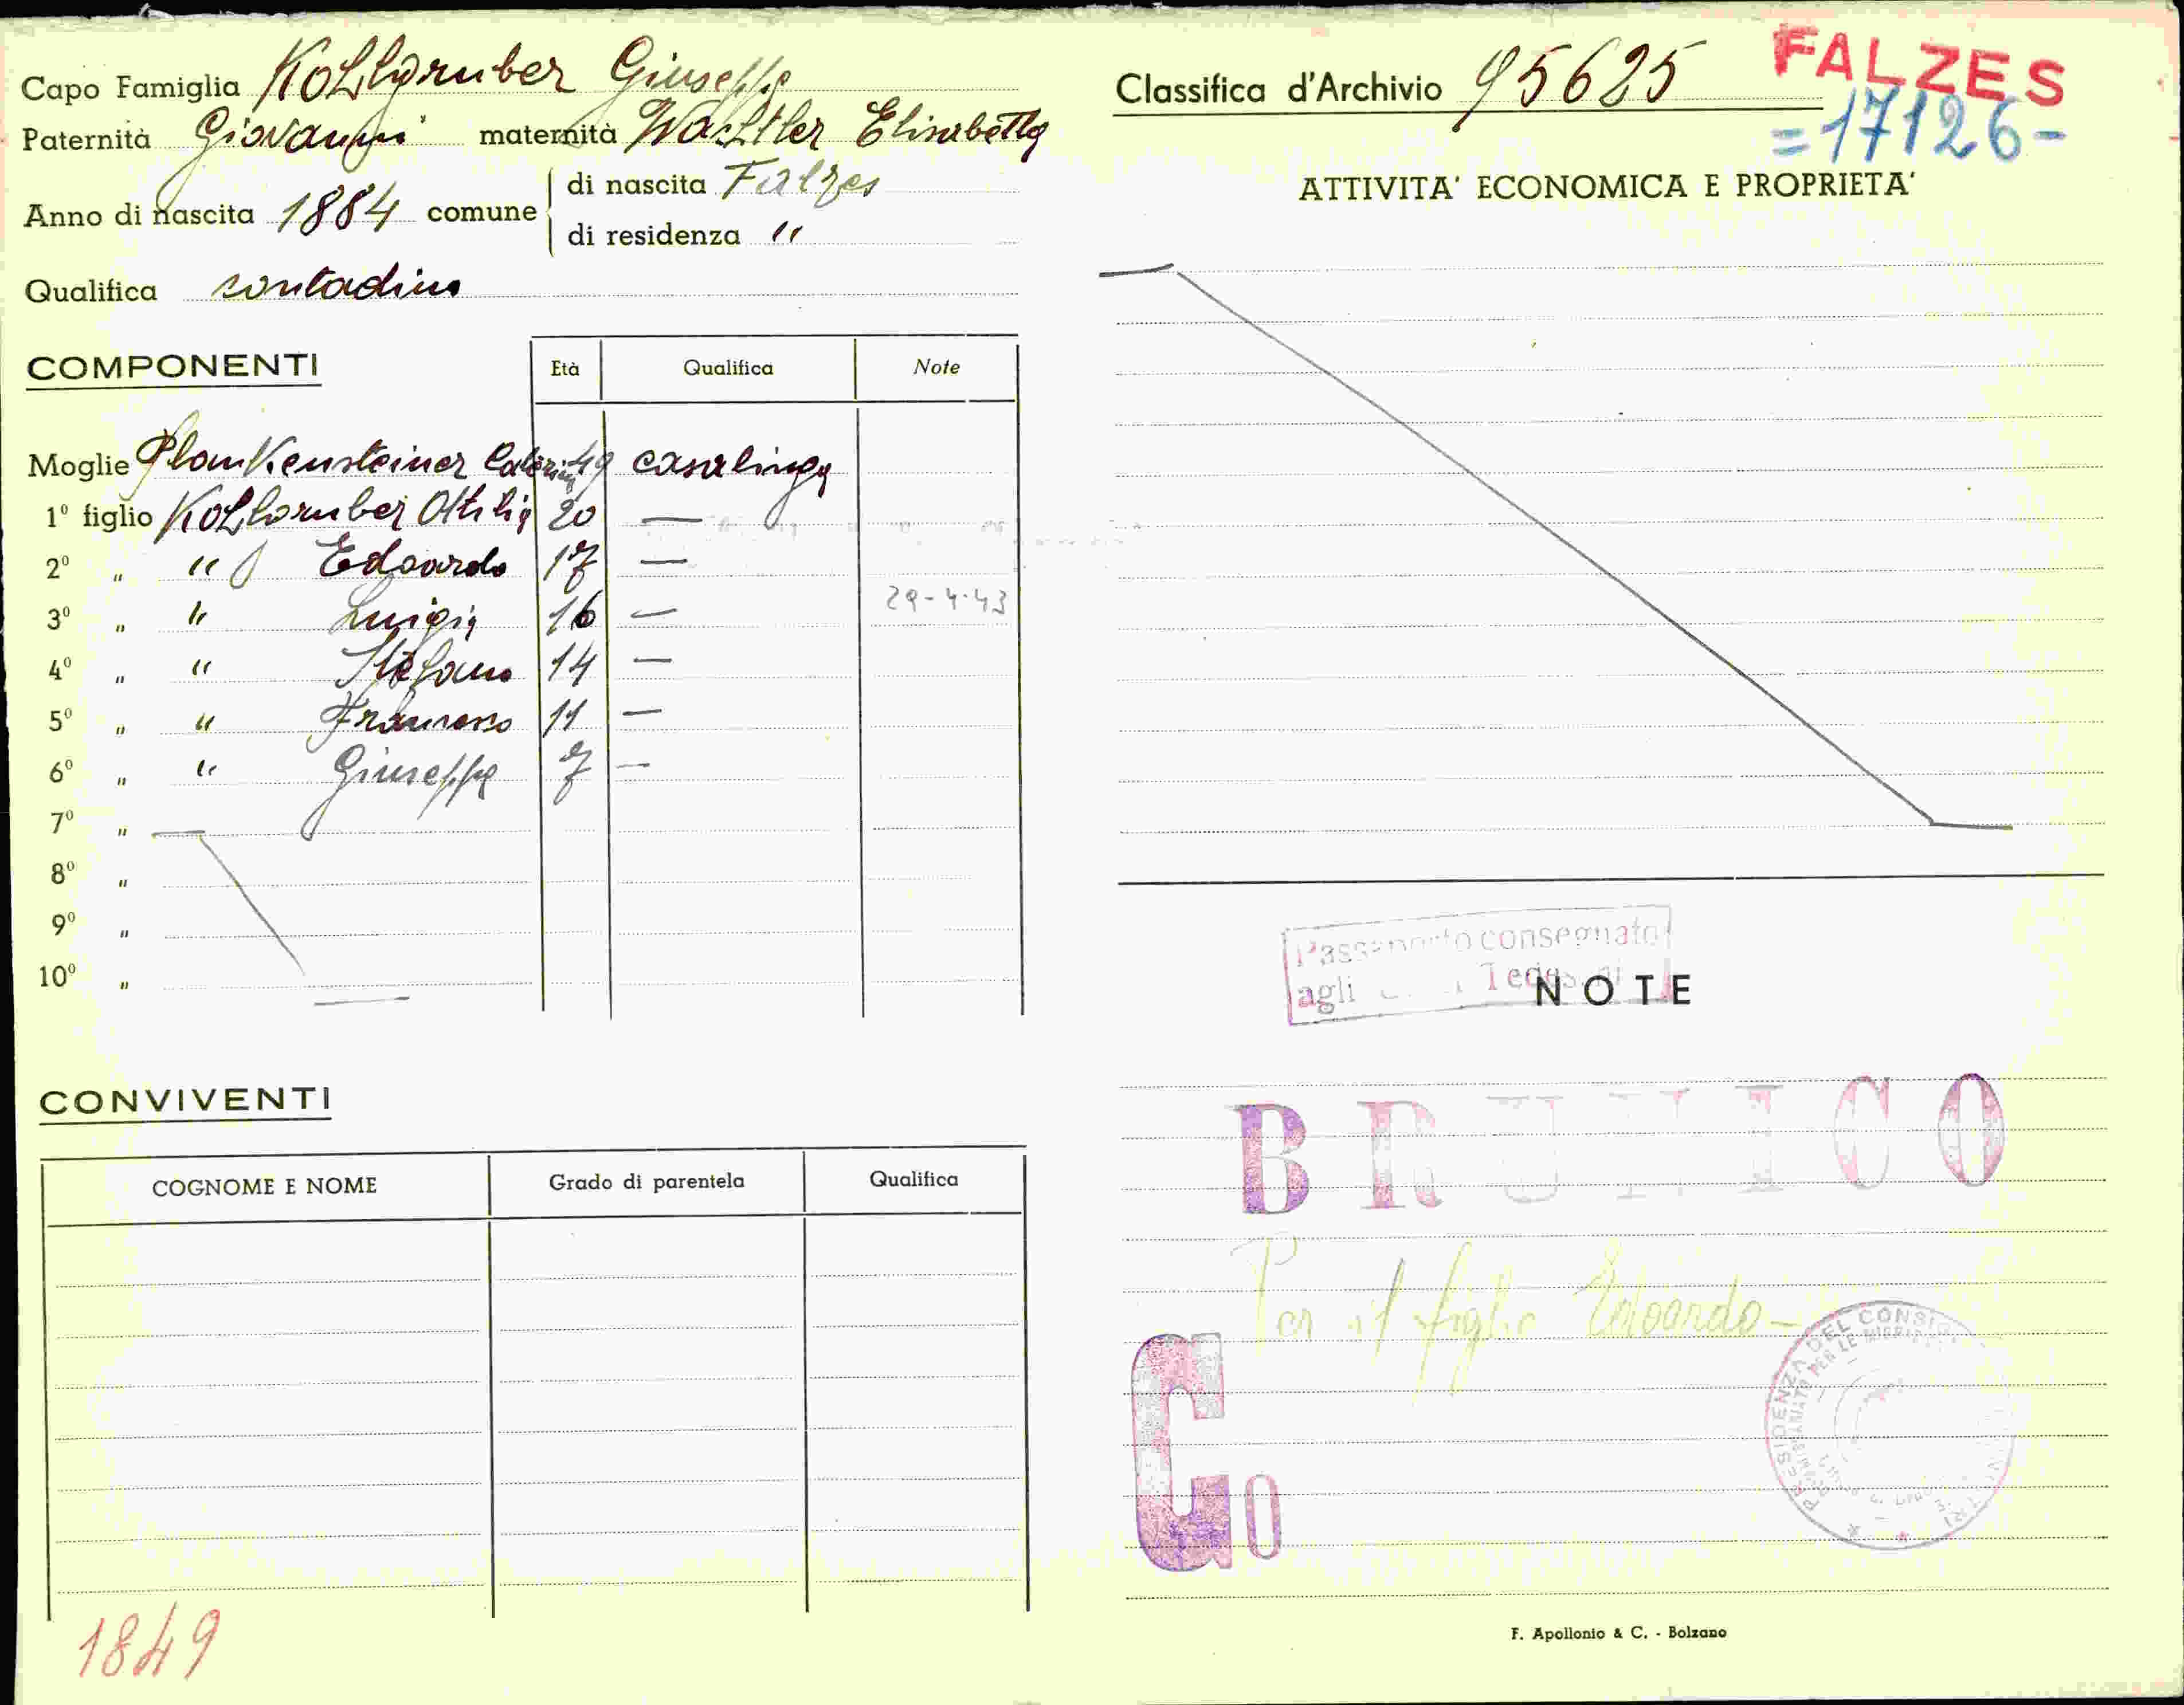 Capo Famiglia Kohlgruber Giuseppe
Paternità Giovanni maternità Wachtler Elisabetta
Anno di nascita 1884 comune di nascita Falzes
di residenza "
Qualifica contadino
COMPONENTI Età Qualifica Note
Moglie Plankensteiner Caterina 49 casalinga
1° figlio Kohlgruber Ottilia 20 —
2° " " Edoardo 17 —
3° " " Luigia 16 — 29-4-43
4° " " Stefano 14 —
5° " " Francesco 11 —
6° " " Giuseppe 7 —
7° "
8° "
9° "
10° "
CONVIVENTI
COGNOME E NOME Grado di parentela Qualifica
1849
Classifica d'Archivio 95625
FALZES
=17126-
ATTIVITA' ECONOMICA E PROPRIETA'
Passaporto consegnato
agli Tedeschi
NOTE
BRUNICO
Per il figlio Edoardo-
G0
PRESIDENZA DEL CONSIGL
PER LE MIGRAZ
F. Apollonio & C. - Bolzano